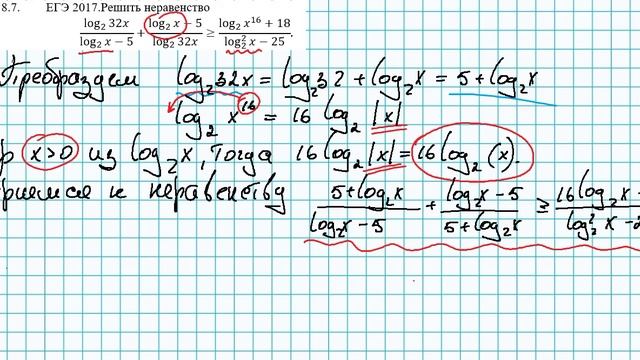 8.7. ЕГЭ 2017.Решить неравенство
log₂ 32x / (log₂ x − 5) + (log₂ x − 5) / log₂ 32x ≥ (log₂ x¹⁶ + 18) / (log₂² x − 25).
log₂ 32x = log₂ 32 + log₂ x = 5 + log₂ x
log₂ x¹⁶ = 16 log₂ |x|
x>0 из log₂ x, тогда 16 log₂ |x| = 16 log₂ (x).
к неравенству (5 + log₂ x) / (log₂ x − 5) + (log₂ x − 5) / (5 + log₂ x) ≥ (16 log₂ x − / (log₂² x − 2